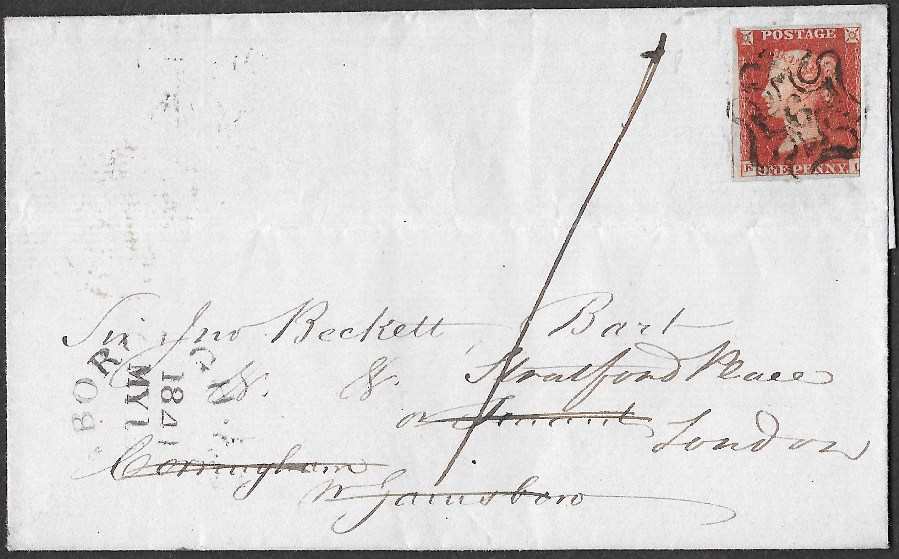 POSTAGE
K ONE PENNY I
Sir Jno Beckett, Bart
&. &. Stratford Place
or Tenant London
Corringham
Nr Gainsboro
BOR
MY1
1841
1